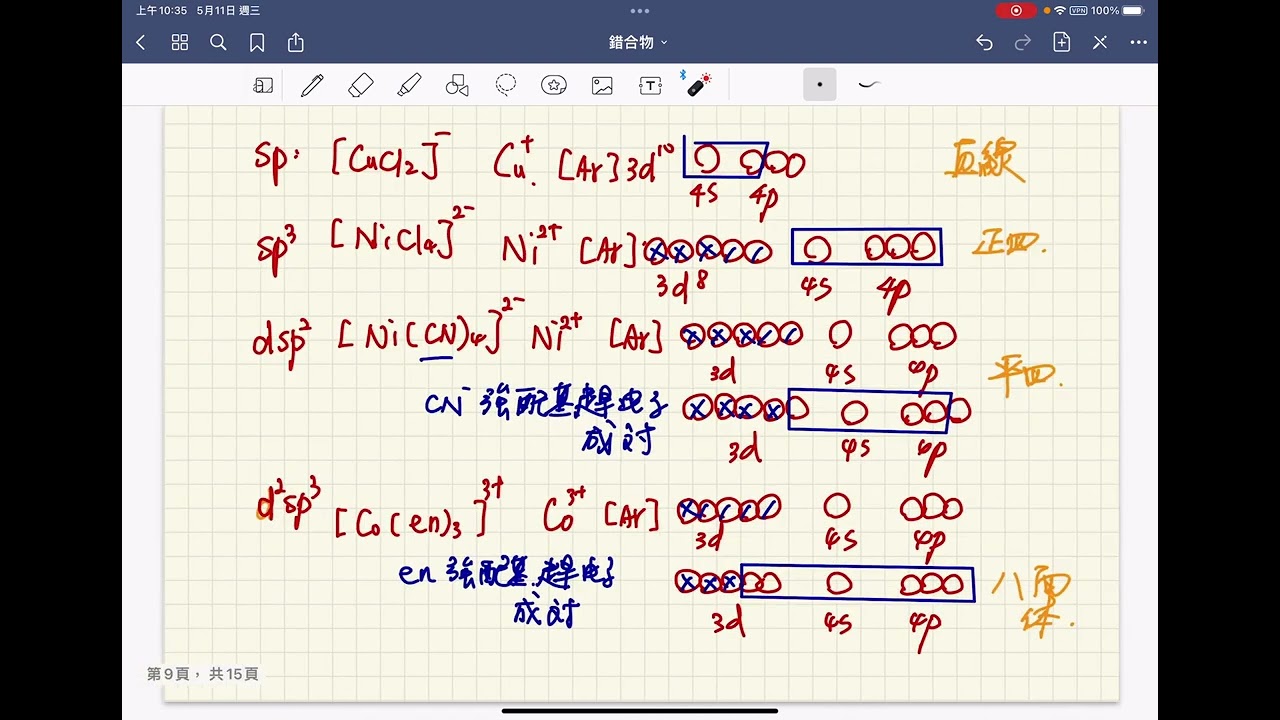 上午10:35 5月11日 週三
100%
VPN
錯合物
T
sp: [CuCl₂]⁻ Cu⁺. [Ar]3d¹⁰ 直線
4s 4p
sp³ [NiCl₄]²⁻ Ni²⁺ [Ar] 正四.
3d⁸ 4s 4p
dsp² [Ni(CN)₄]²⁻ Ni²⁺ [Ar]
3d 4s 4p 平四.
CN⁻ 強配基,趕電子
成對
3d 4s 4p
d²sp³ [Co(en)₃]³⁺ Co³⁺ [Ar]
3d 4s 4p
en 強配基.趕電子 八面
成對 体.
3d 4s 4p
第9頁,共15頁